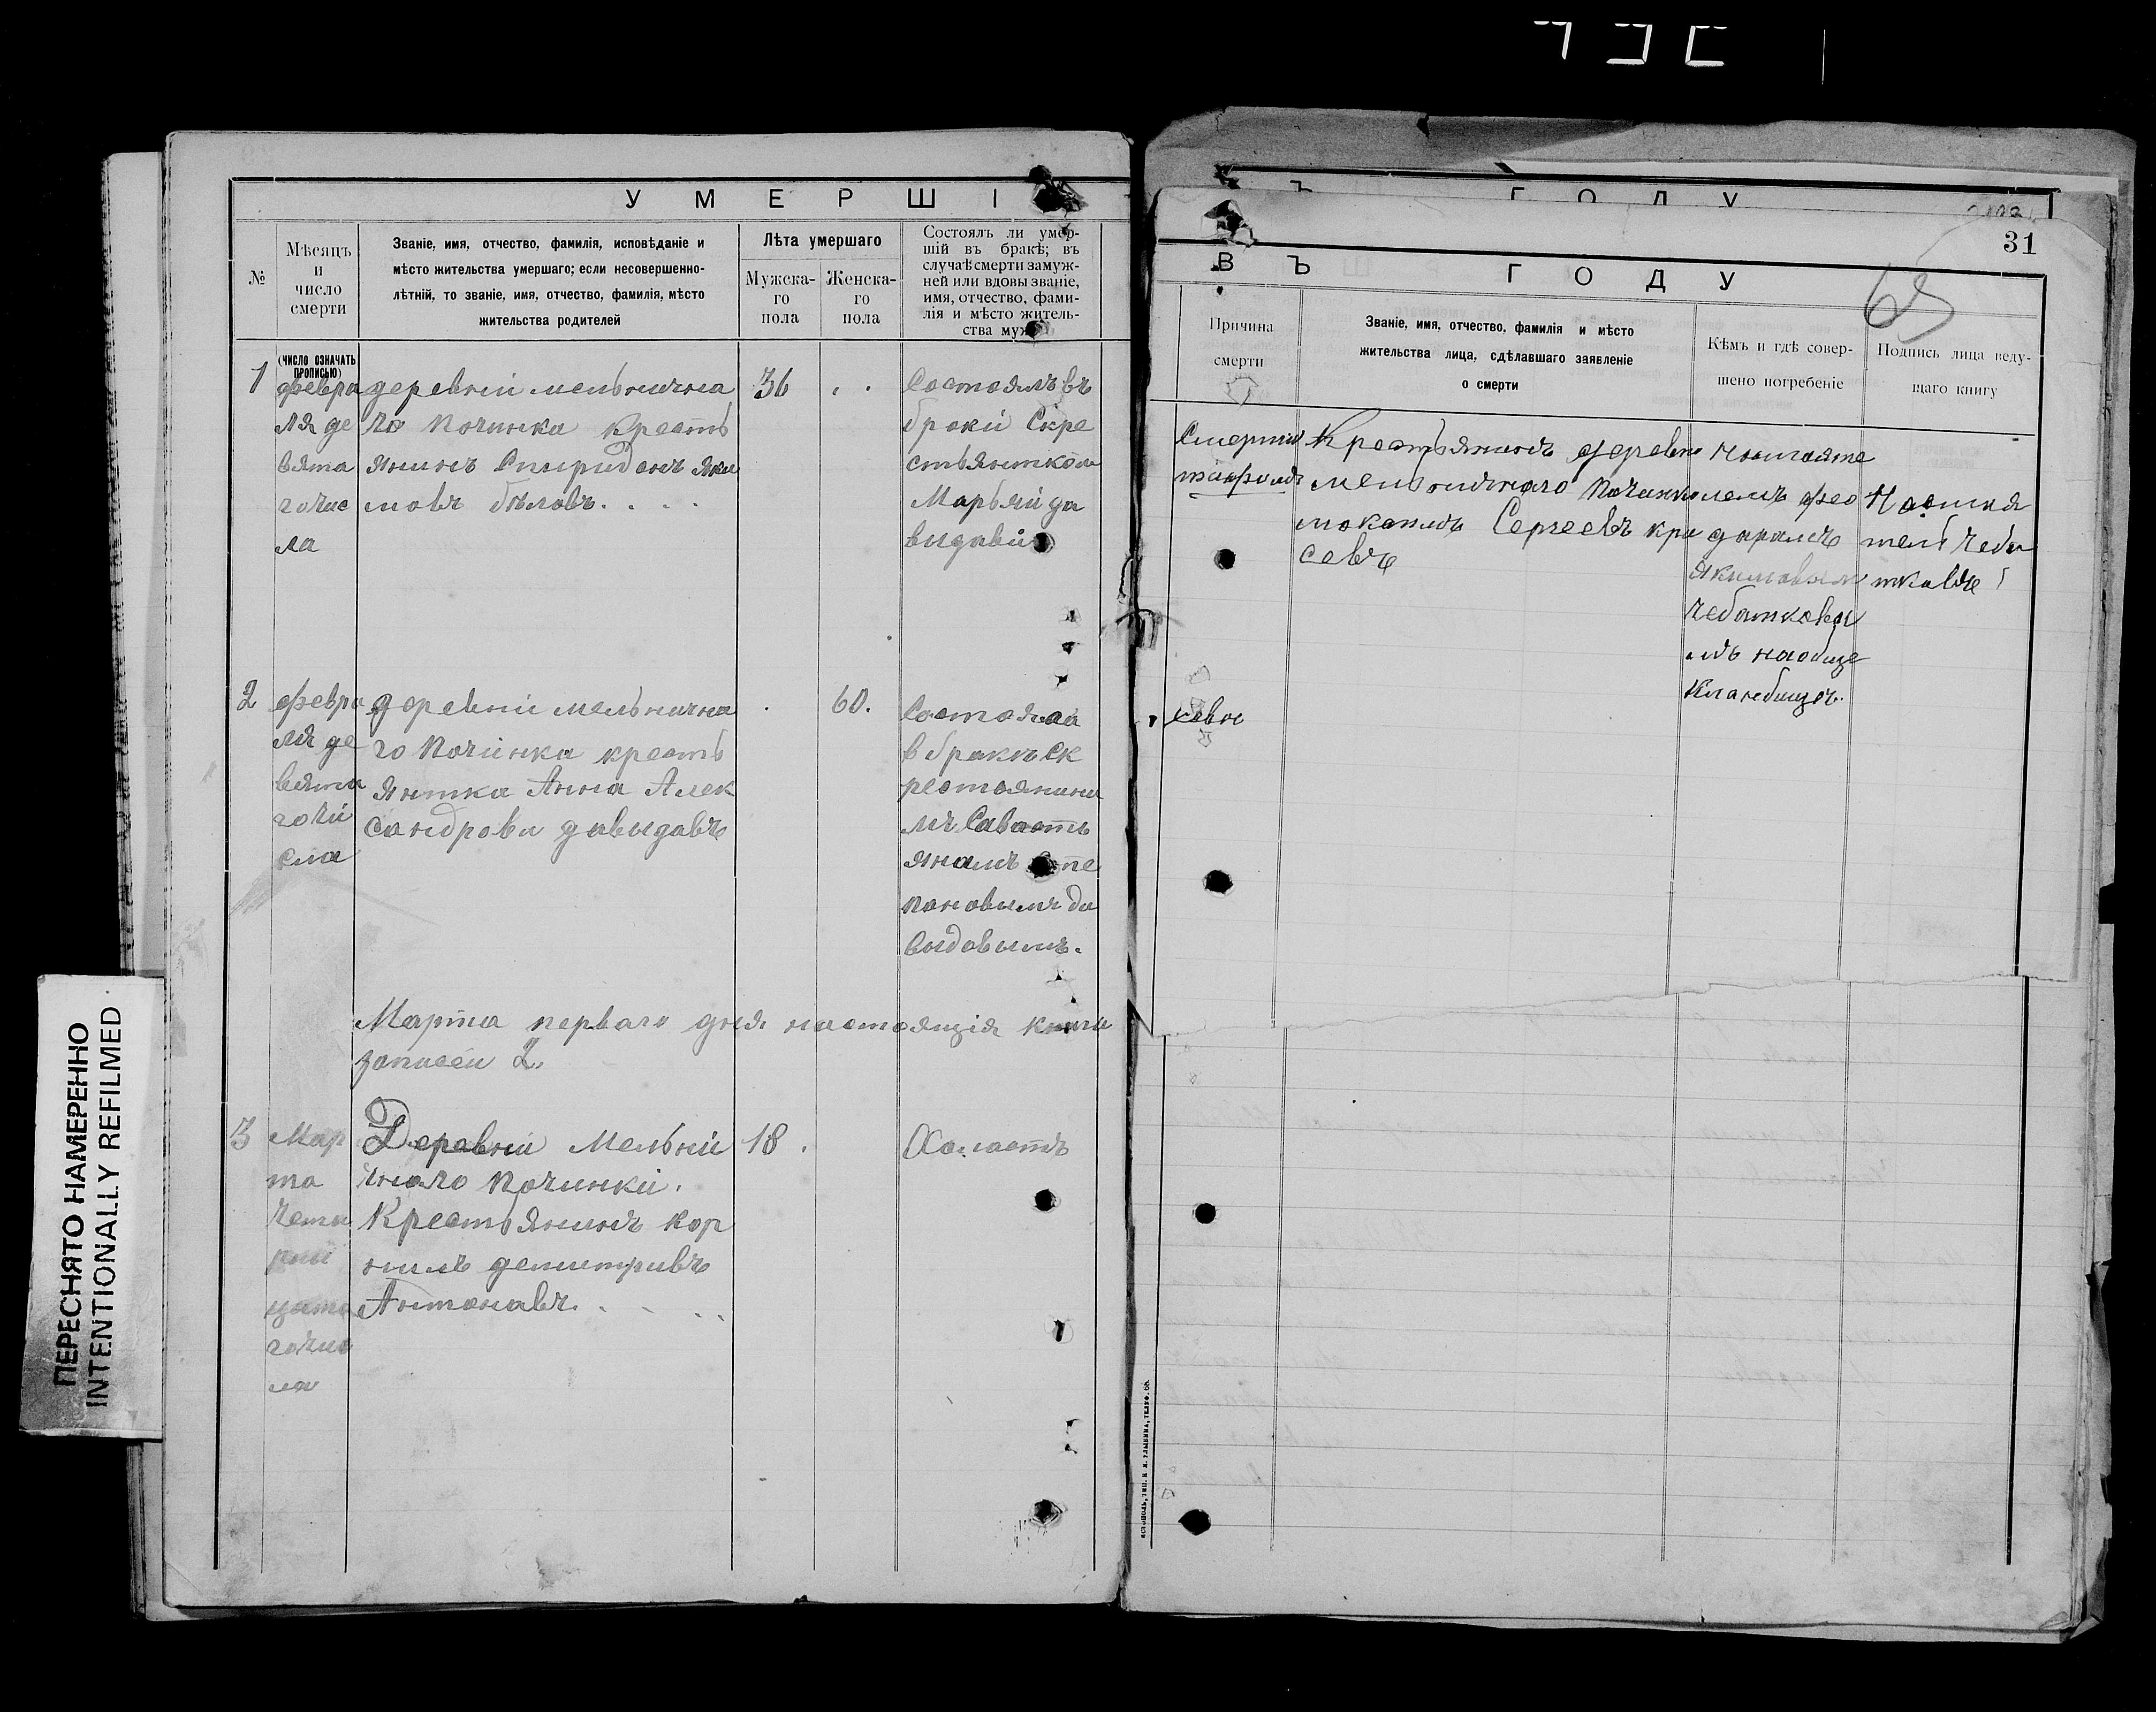 У М Е Р Ш І
№
Мѣсяцъ
и
число
смерти
Званіе, имя, отчество, фамилія, исповѣданіе и
мѣсто жительства умершаго; если несовершенно-
лѣтній, то званіе, имя, отчество, фамилія, мѣсто
жительства родителей
Лѣта умершаго
Мужска-
го
пола
Женска-
го
пола
Состоялъ ли умер-
шій въ бракѣ; въ
случаѣ смерти замуж-
ней или вдовы званіе,
имя, отчество, фами-
лія и мѣсто житель-
ства мужа
(число означать
прописью)
1
февра
ля де
вята
гочис
ла
деревни мельнична
го Починка Кресть
янинъ Спиридонъ Яки
мовъ бѣловъ. . . .
36
Состоялъ въ
браки Скре
стьянткой
Марьяй да
видавай
2
февра
ля де
вята
гочи
сла
деревни мельнична
го Починка кресть
янтка Анна Алек
сандрова давыдавъ
60.
Состояла
в бракъ ск
рестоянина
мъ Савасть
янамъ Сте
пановымъ да
выдовымъ.
Марта перваго дня настоящія книги
записеи 2.
3
Мар
та
чета
рнй
цата
гочис
ла
Деревни Мельни
чнаго Починки.
Крестьянинъ кор
нилъ демитривъ
Антонавъ.
18
Холастъ
Ъ Г О Д У
31
65
В Ъ Г О Д У
Причина
смерти
Званіе, имя, отчество, фамилія и мѣсто
жительства лица, сдѣлавшаго заявленіе
о смерти
Кѣмъ и гдѣ совер-
шено погребеніе
Подпись лица веду-
щаго книгу
тифомъ
Крестьянинъ деревни
мельничнаго Починка
Сергеевъ кри
севъ
Настояте
лемъ фео
дарамъ
Якимовым
Чебатковы
мъ наобще
кланбищъ.
Настая
тель Чеба
ткавъ
ПЕРЕСНЯТО НАМЕРЕННО
INTENTIONALLY REFILMED